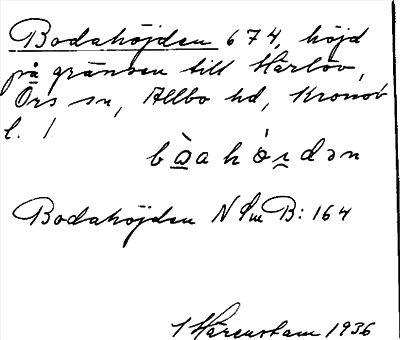 Bodahöjden 674, höjd
på gränsen till Härlöv,
Örs sn, Allbo hd, Kronob
l. /
Bodahöjden N Sm B: 164
Härenstam 1936